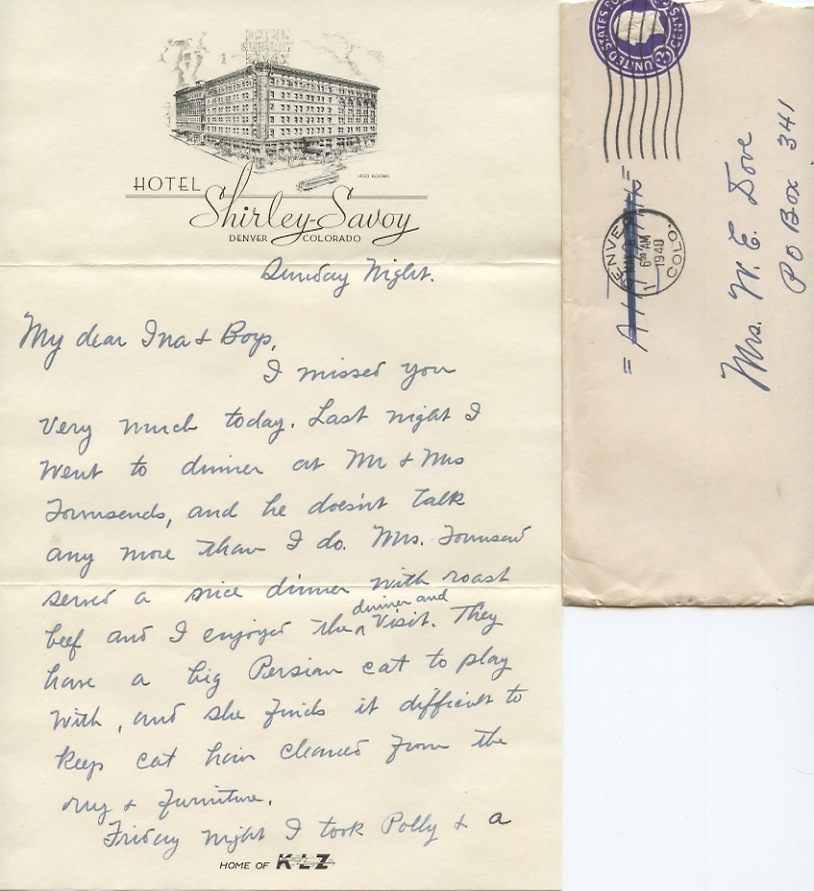 400 ROOMS
HOTEL
Shirley-Savoy
DENVER COLORADO
Sunday Night.
My dear Ina & Boys,
I missed you
very much today. Last night I
went to dinner at Mr & Mrs
Townsends, and he doesn't talk
any more than I do. Mrs. Townsend
served a nice dinner with roast
beef and I enjoyed the dinner and visit. They
have a big Persian cat to play
with, and she finds it difficult to
keep cat hair cleaned from the
rug & furniture.
Friday night I took Polly & a
HOME OF KLZ
UNITED STATES
3 CENTS
DENVER
COLO.
6 30 AM
1940
Mrs. W. E. Dove
PO Box 341